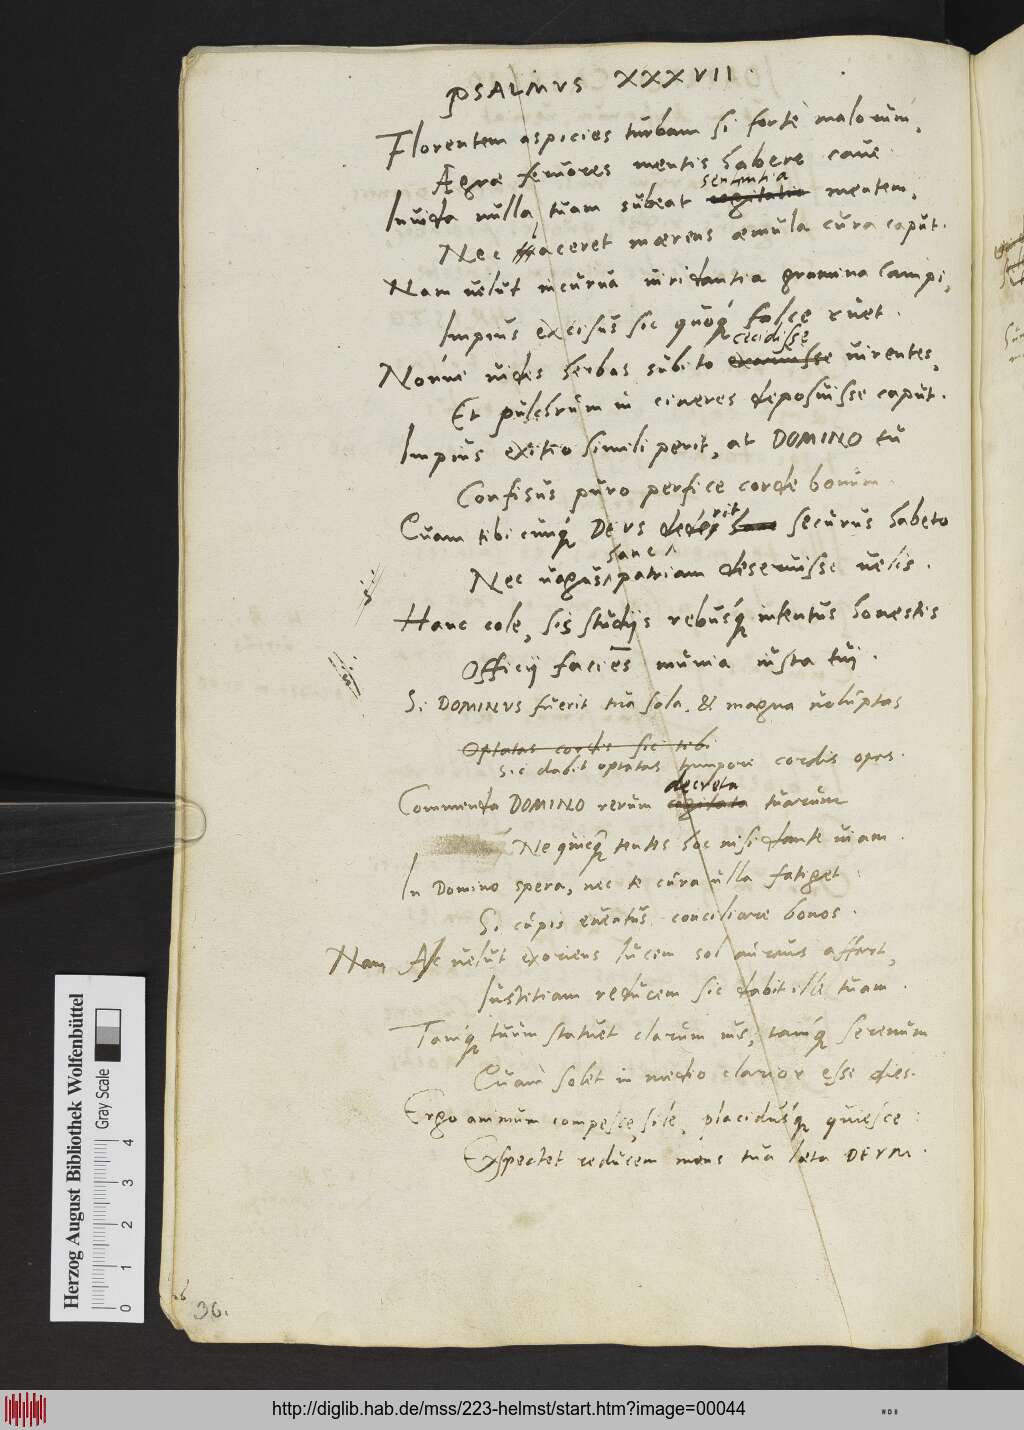 PSALMVS XXXVII.
Florentem aspicies turbam si forte malorum,
Ægræ femores mentis habere caue.
sententia
Inuida nulla tuam subeat cogitatio mentem,
Nec maceret mærens æmula cura caput.
Nam uelut incurua uiridantia gramina campi,
Impius excisus sic quoq́ falce ruet.
cecidisse
Nónne uides herbas subito exaruisse uirentes,
Et pulchrum in cineres deposuisse caput.
Impius exitio simili perit, at DOMINO tu
Confisus puro perfice corde bonum.
rit
Quam tibi cunq́ DEVS hanc securus habeto
hanc
Nec uagus patriam deseruisse uelis.
Hanc cole, sis studijs rebusq́ intentus honestis
Officij facies munia iusta tui.
Si DOMINVS fuerit tua sola, & magna uoluptas
Optatas cordis sic tibi
Sic dabit optatas tempore cordis opes.
decreta
Commenda DOMINO rerum cogitata tuarum
Ne quicq́ tentes hoc nisi dante uiam.
In Domino spera, nec te cura ulla fatiget:
Si cupis euentus conciliare bonos.
Nam Ac uelut exoriens lucem sol aureus affert,
Iustitiam reducem sic dabit ille tuam.
Tamq́ tuum statuet clarum ius, tamq́ serenum
Quam solet in medio clarior esse dies.
Ergo animum compesce, sile, placidusq́ quiesce:
Exspectet reducem mens tua læta DEVM.
36.
Herzog August Bibliothek Wolfenbüttel
Gray Scale
0 1 2 3 4
http://diglib.hab.de/mss/223-helmst/start.htm?image=00044
WDB